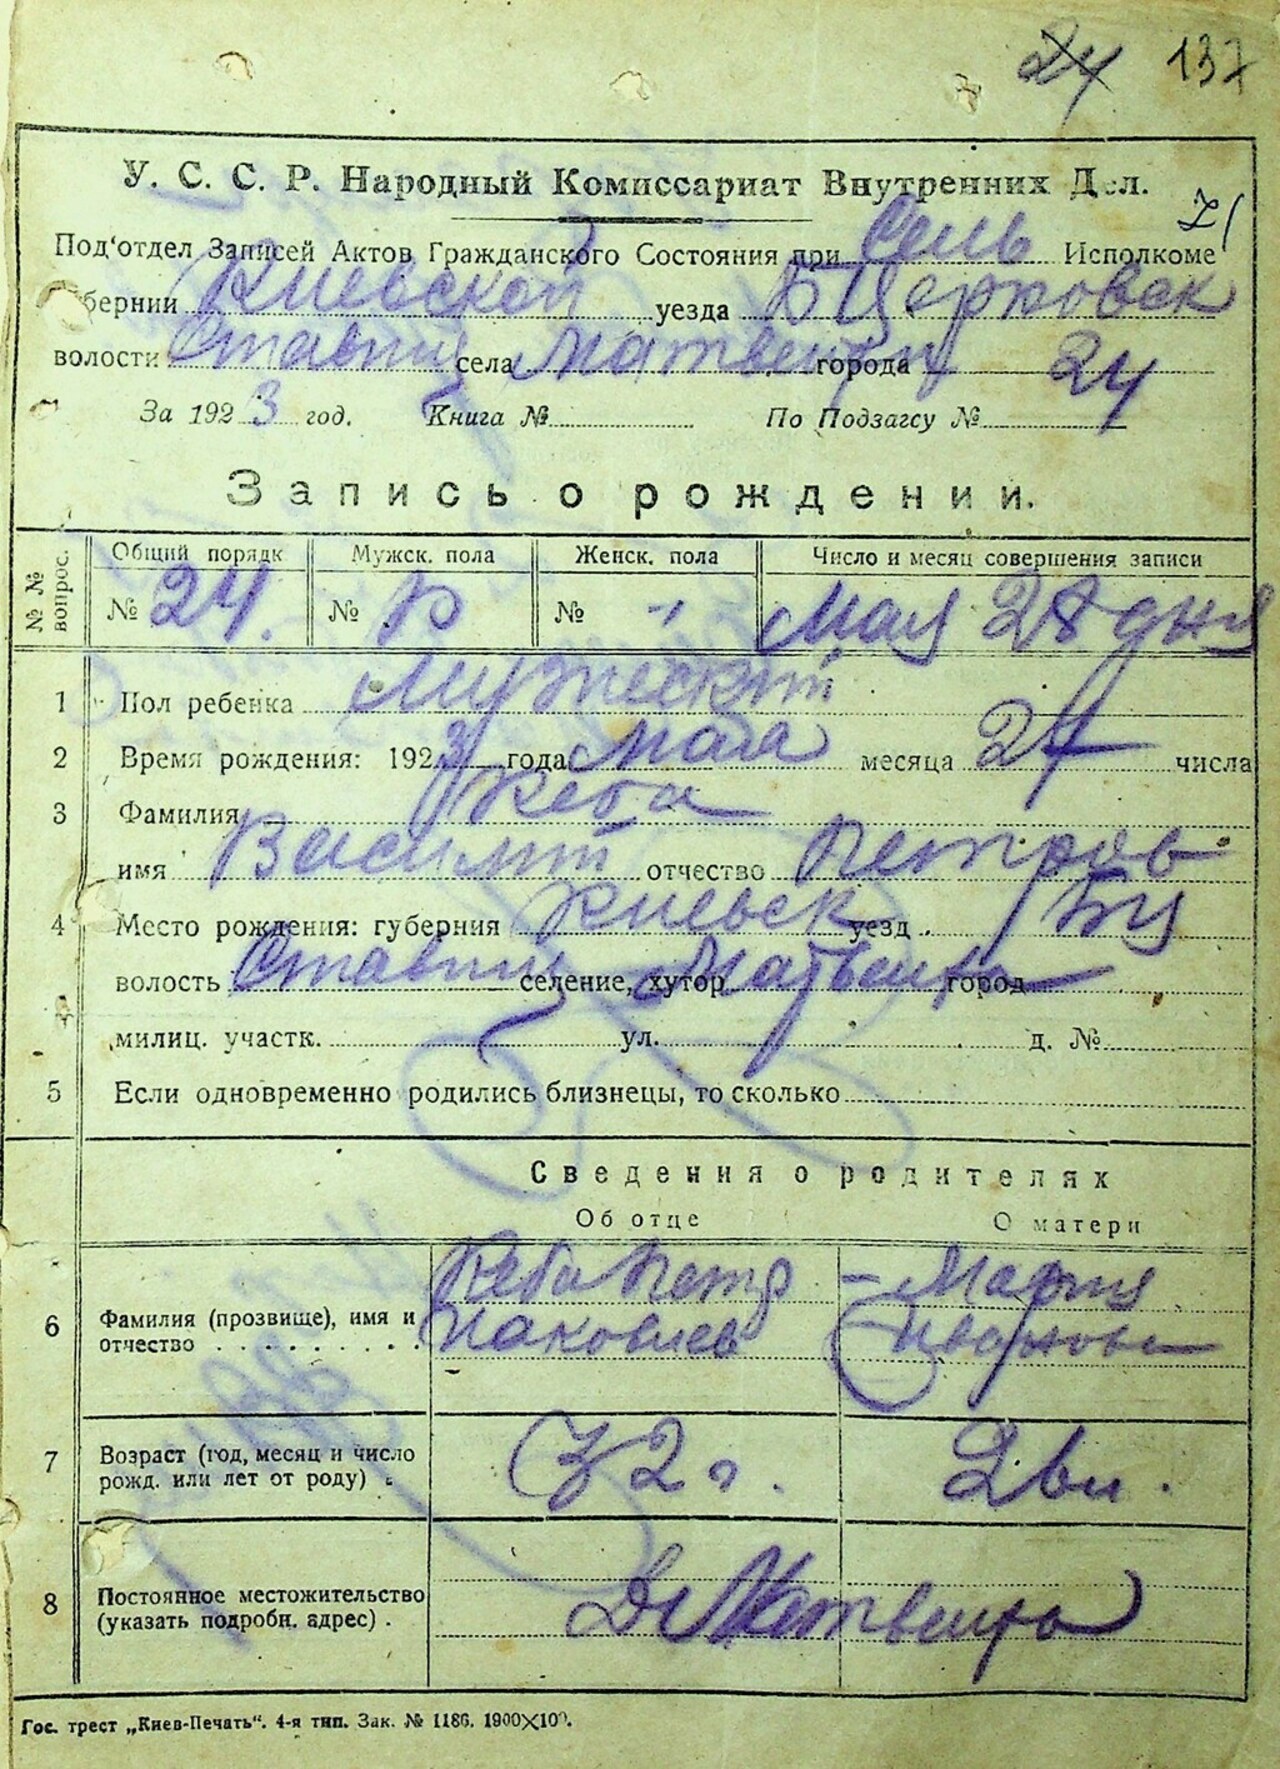 24 137
У. С. С. Р. Народный Комиссариат Внутренних Дел.
71
Под'отдел Записей Актов Гражданского Состояния при Сель Исполкоме
Губернии Киевской уезда БЦерковск
волости Ставищ села Матвеиха города 24
За 1923 год. Книга № По Подзагсу №
Запись о рождении.
№ № вопрос. Общий порядк Мужск. пола Женск. пола Число и месяц совершения записи
№ 24. № № Мая 28 дня
1 Пол ребенка Мужеский
2 Время рождения: 1923 года мая месяца 24 числа
3 Фамилия Кеба
имя Василий отчество Петров
4 Место рождения: губерния Киевск уезд БЦ
волость Ставищ селение, хутор Матвеиха город
милиц. участк. ул. д. №
5 Если одновременно родились близнецы, то сколько
Сведения о родителях
Об отце О матери
6 Фамилия (прозвище), имя и отчество Кеба Петр Яковлев – Мария Иванова
7 Возраст (год, месяц и число рожд. или лет от роду) 32 г.
8 Постоянное местожительство (указать подробн. адрес) Матвеиха
Гос. трест „Киев-Печать“. 4-я тип. Зак. № 1186. 1900×100.